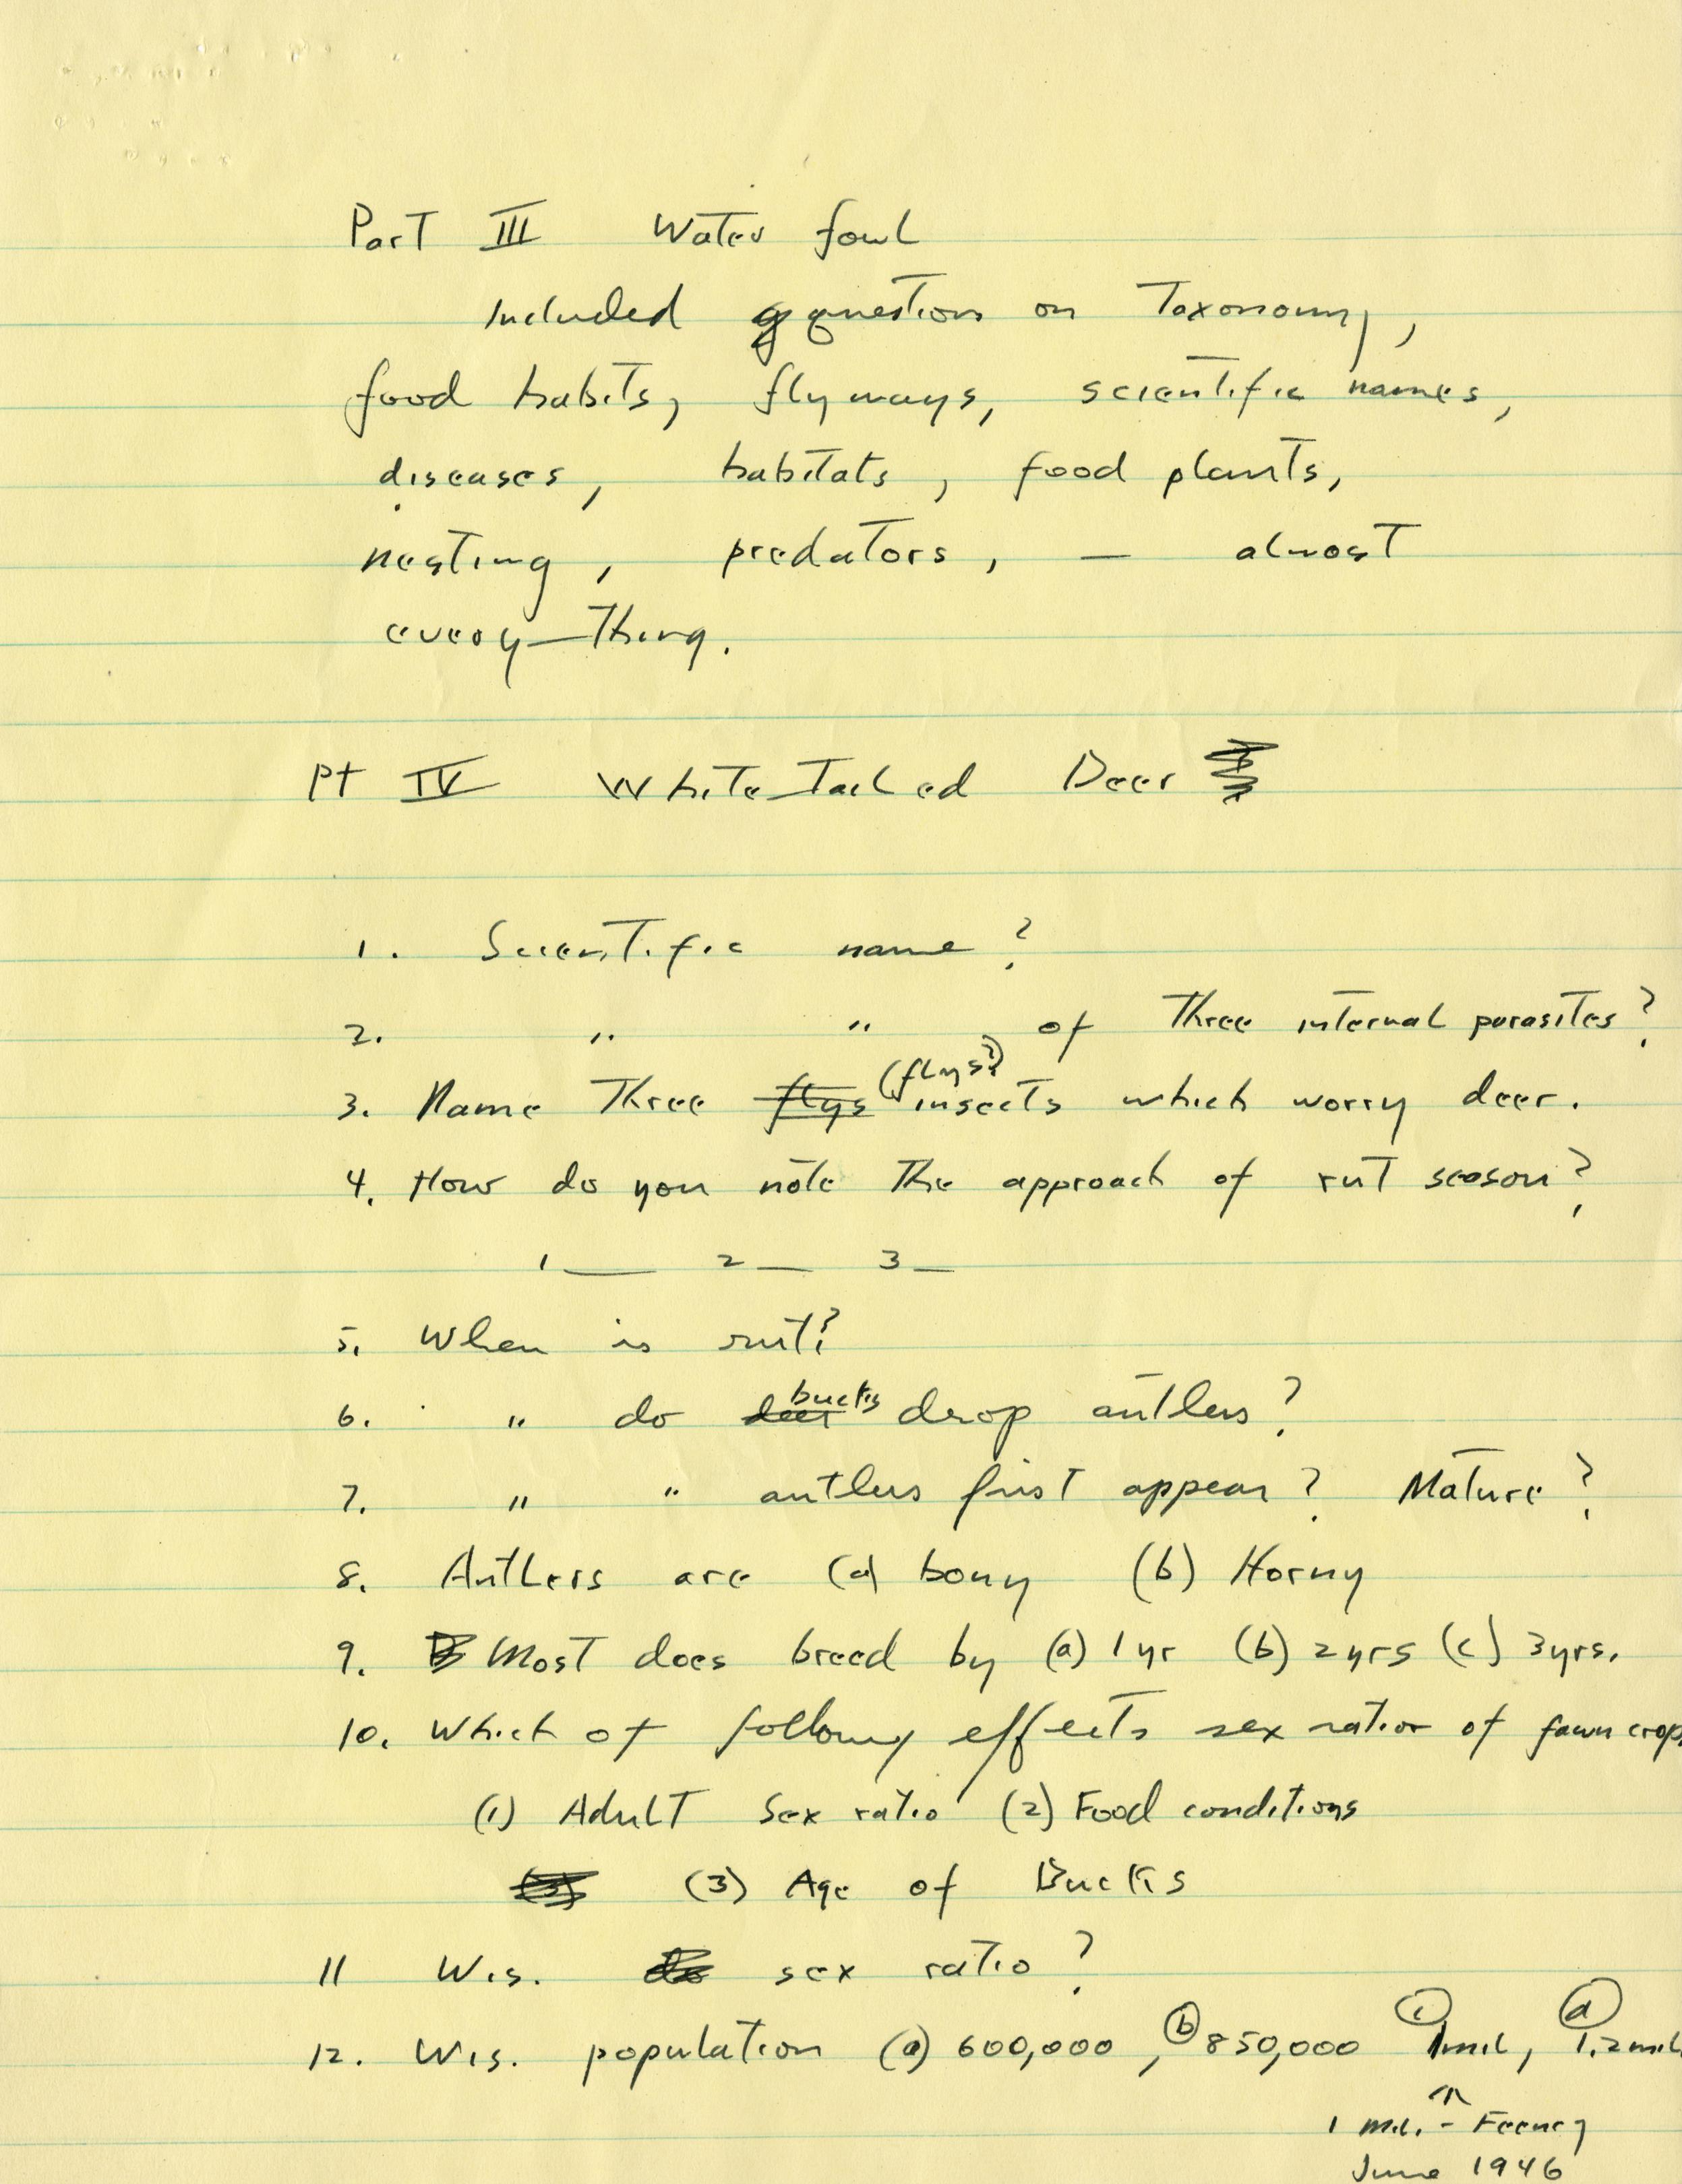 Part III Water fowl
Included question on Taxonomy,
food habits, flyways, scientific names,
diseases, habitats, food plants,
nesting, predators, — almost
every-thing.
Pt IV White-Tailed Deer
1. Scientific name?
2. " " of Three internal parasites?
3. Name Three flys (flys?) insects which worry deer.
4. How do you note The approach of rut season?
1 — 2 — 3 —
5. When is rut?
6. " do deer bucks drop antlers?
7. " " antlers first appear? Mature?
8. Antlers are (a) bony (b) Horny
9. Most does breed by (a) 1 yr (b) 2 yrs (c) 3 yrs.
10. Which of following effects sex ratio of fawn crop
(1) Adult Sex ratio (2) Food conditions
(3) Age of Bucks
11 Wis. sex ratio?
12. Wis. population (a) 600,000, (b) 850,000 (c) 1 mil, (d) 1.2 mil
↑
1 mil. - Feeney
June 1946